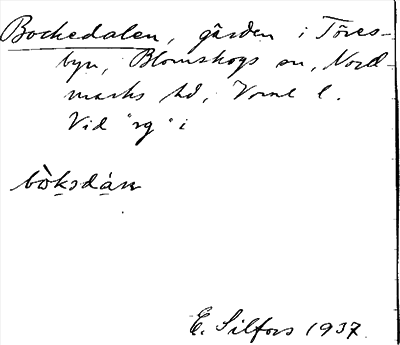 Bockedalen, gården i Töres-
byn, Blomskogs sn, Nord-
marks hd, Vrml l.
Vid "rg" i
bòksdán
E. Silfors 1937